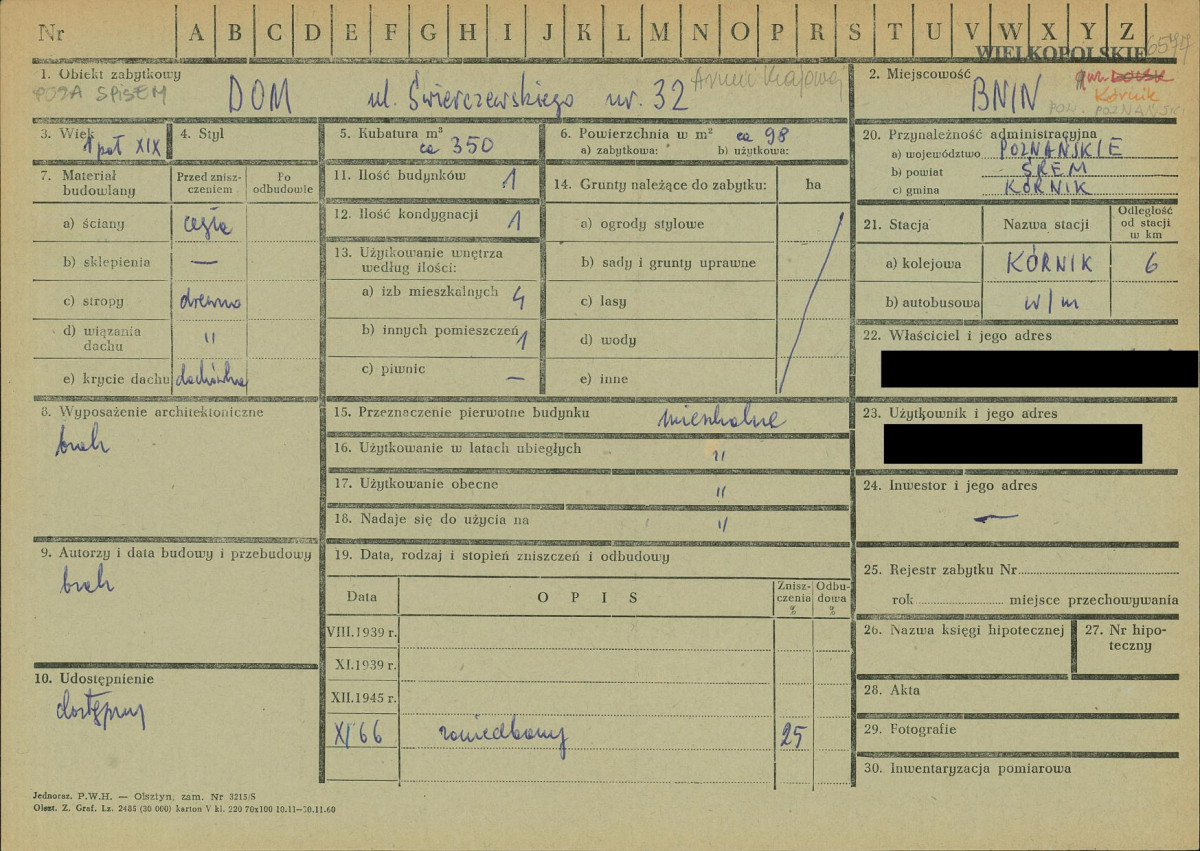 Nr A B C D E F G H I J K L M N O P R S T U V W X Y Z
WIELKOPOLSKIE 6577
1. Obiekt zabytkowy
POZA SPISEM
DOM ul. Świerczewskiego nr. 32
Armii Krajowej
2. Miejscowość
BNIN
gm.
Kórnik
POW. POZNAŃSKI
3. Wiek
1 poł XIX
4. Styl
5. Kubatura m³
ca 350
6. Powierzchnia w m² ca 98
a) zabytkowa: b) użytkowa:
7. Materiał budowlany
Przed zniszczeniem
Po odbudowie
a) ściany cegła
b) sklepienia —
c) stropy drewno
d) wiązania dachu "
e) krycie dachu dachówka
8. Wyposażenie architektoniczne
brak
9. Autorzy i data budowy i przebudowy
brak
10. Udostępnienie
dostępny
11. Ilość budynków 1
12. Ilość kondygnacji 1
13. Użytkowanie wnętrza według ilości:
a) izb mieszkalnych 4
b) innych pomieszczeń 1
c) piwnic —
14. Grunty należące do zabytku: ha
a) ogrody stylowe
b) sady i grunty uprawne
c) lasy
d) wody
e) inne
15. Przeznaczenie pierwotne budynku mieszkalne
16. Użytkowanie w latach ubiegłych "
17. Użytkowanie obecne "
18. Nadaje się do użycia na "
19. Data, rodzaj i stopień zniszczeń i odbudowy
Data OPIS Zniszczenia % Odbudowa %
VIII.1939 r.
XI.1939 r.
XII.1945 r.
XI 66 zaniedbany 25
20. Przynależność administracyjna
a) województwo POZNAŃSKIE
b) powiat ŚREM
c) gmina KÓRNIK
21. Stacja Nazwa stacji Odległość od stacji w km
a) kolejowa KÓRNIK 6
b) autobusowa w/m
22. Właściciel i jego adres
23. Użytkownik i jego adres
24. Inwestor i jego adres
—
25. Rejestr zabytku Nr
rok miejsce przechowywania
26. Nazwa księgi hipotecznej
27. Nr hipoteczny
28. Akta
29. Fotografie
30. Inwentaryzacja pomiarowa
Jednoraz. P.W.H. — Olsztyn, zam. Nr 3215/S
Olszt. Z. Graf. Lz. 2485 (30 000) karton V kl. 220 70x100 10.11—30.11.60